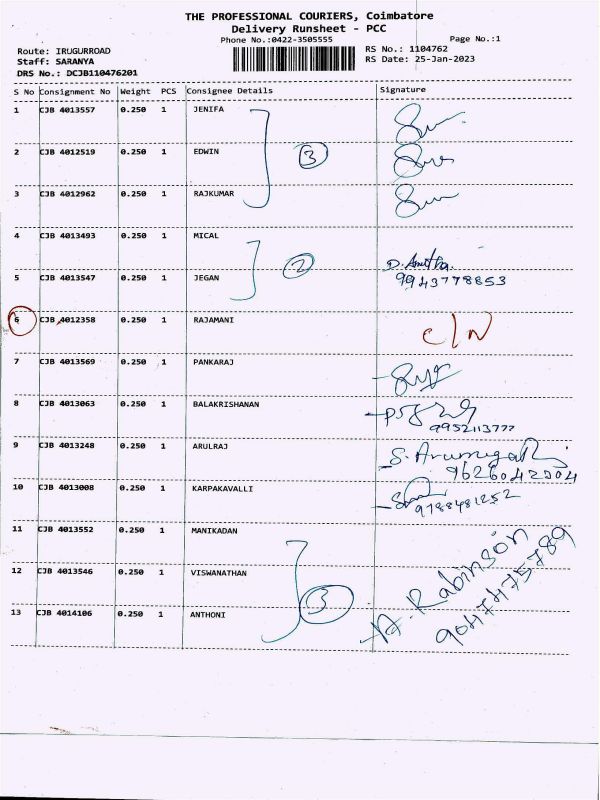 THE PROFESSIONAL COURIERS, Coimbatore
Delivery Runsheet - PCC
Phone No.:0422-3505555 Page No.:1
Route: IRUGURROAD RS No.: 1104762
Staff: SARANYA RS Date: 25-Jan-2023
DRS No.: DCJB110476201
S No Consignment No Weight PCS Consignee Details Signature
1 CJB 4013557 0.250 1 JENIFA
2 CJB 4012519 0.250 1 EDWIN 3
3 CJB 4012962 0.250 1 RAJKUMAR
4 CJB 4013493 0.250 1 MICAL
2 D. Amutha.
5 CJB 4013547 0.250 1 JEGAN 9943778853
6 CJB 4012358 0.250 1 RAJAMANI C/N
7 CJB 4013569 0.250 1 PANKARAJ
8 CJB 4013063 0.250 1 BALAKRISHANAN
9952113777
9 CJB 4013248 0.250 1 ARULRAJ S.
9626042504
10 CJB 4013008 0.250 1 KARPAKAVALLI
9788481252
11 CJB 4013552 0.250 1 MANIKADAN
12 CJB 4013546 0.250 1 VISWANATHAN
3 A. Rabinson
13 CJB 4014106 0.250 1 ANTHONI 9047475789